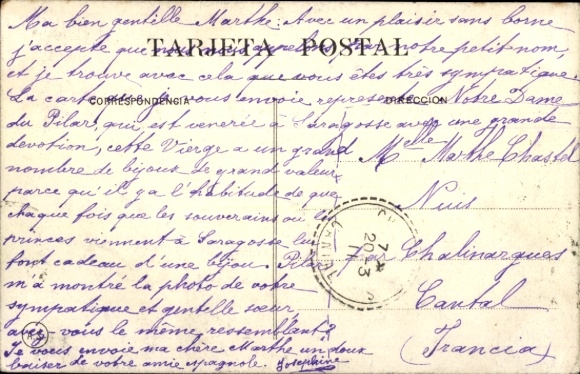 Ma bien gentille Marthe: Avec un plaisir sans borne
j'accepte que nous nous appelons par notre petit nom,
TARJETA POSTAL
et je trouve avec cela que vous êtes très sympatique
La carte que je vous envoie represente Notre Dame
CORRESPONDENCIA
DIRECCION
du Pilar, qui est venerie à Saragosse avec une grande
devotion, cette Vierge a un grand
nombre de bijoux de grand valeur
parce qu'il y a l'habitude de que
chaque fois que les souverains ou les
princes viennent à Saragosse, lui
font cadeau d'une bijou. Pilar
m'a montré la photo de votre
sympatique et gentelle sœur
avez-vous le même ressemblant?
Je vous envoie ma chère Marthe un doux
baiser de votre amie espagnole. Josephine
Melle Marthe Chastel
Nuis
par Chalinargues
Cantal
(Francia)